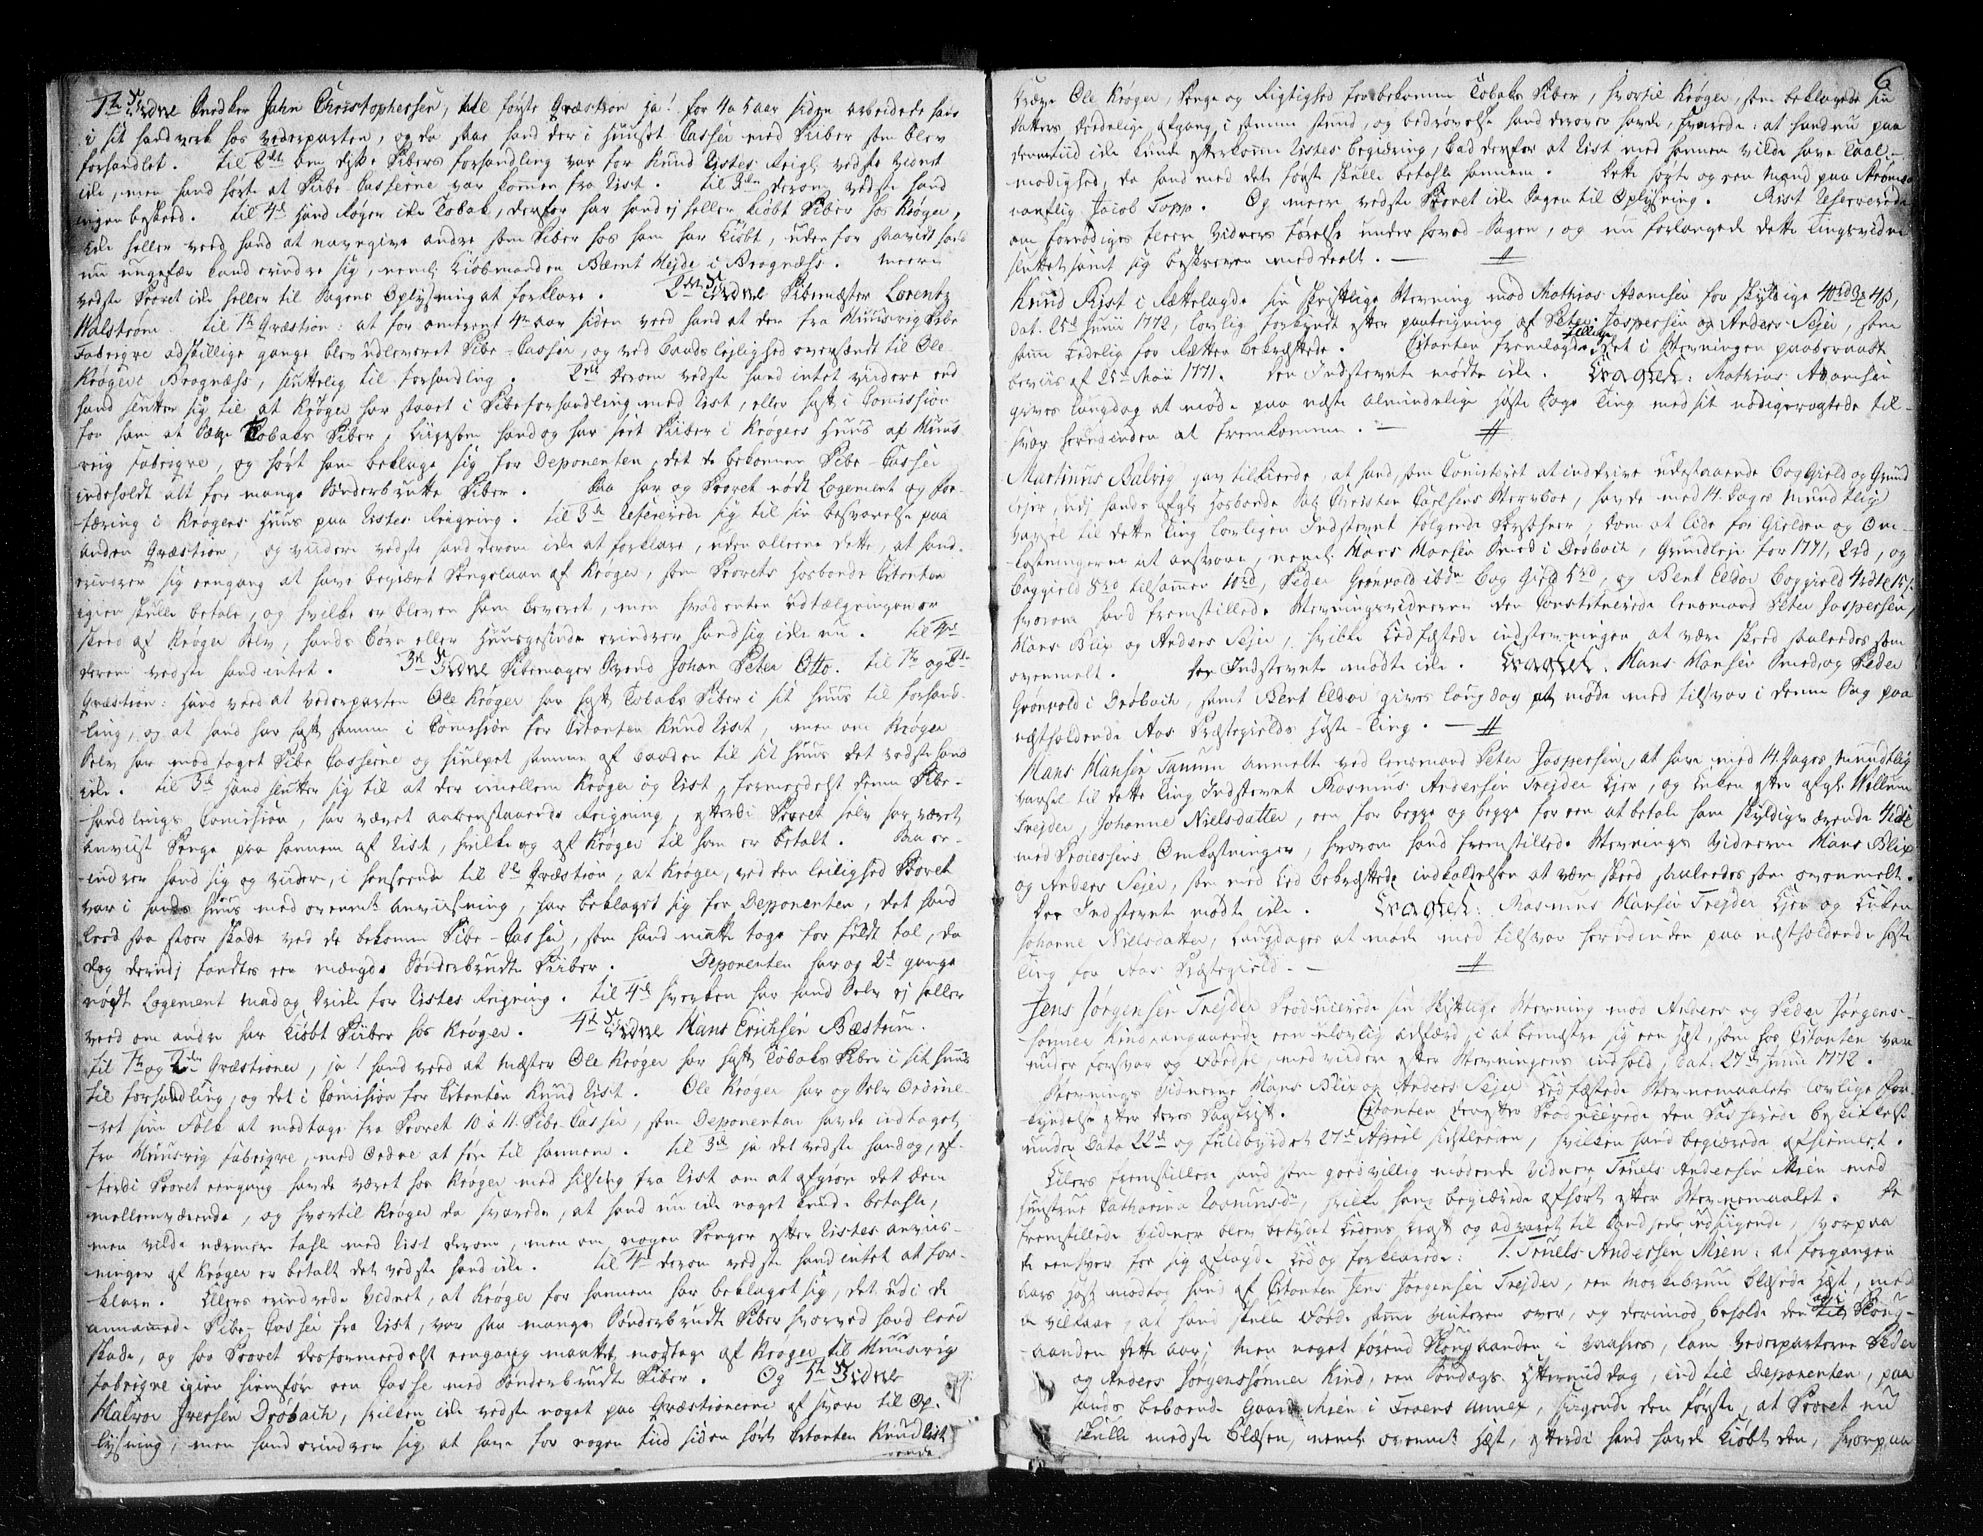 1te Vidne Snedker Jahn Christophersen, til første Qvæstion ja! for 4 a 5 aar siden arbeidede han
i sit handverk hos vederparten, og da saae hand der i huuset Casser med Piber som blev
forhandlet. til 2den om disse Pibers forhandling var for Knud Listes Reign. vedste vidnet
ikke, men hand hørte at Pibe Casserne var kommen fra List. til 3die derom vedste hand
ingen beskeed. til 4de hand Røger ikke Tobak, derfor har hand ej heller kiøbt Piber hos Krøger,
ikke heller veed hand at navngive andre som Piber hos ham har kiøbt, uden for saavidt hand
nu ungefær kand erindre sig, neml. Kiøbmanden Bærnt Hejde i Bragnæss. meere
vedste Provet ikke heller til Sagens Oplysning at forklare. 2det Vidne Pibemæster Lorentz
Walstrøm til 1te Qvæstion: at for omtrent 4re aar siden veed hand at der fra Huusvig Pibe
Fabriqve adskillige gange blev udleveret Pibe-Casser, og ved baadslejlighed oversendt til Ole
Krøger Bragnæss, sluttelig til forhandling. 2det derom vedste hand intet viidere end
hand slutter sig til at Krøger har staaet i Pibeforhandling med List, eller haft i Comission
for ham at Sælge Tobaks Piber, ligesom hand og har seet Piber i Krøgers Huus af Huus
vig Fabriqve, og hørt ham beklage sig for Deponenten, det de bekomne Pibe-Casser
indeholdt alt for mange Sønderbrutte Piber. Saa har og Provet nødt Logement og for-
tæring i Krøgers Huus paa Listes Reigning. til 3de refererede sig til sin besvarelse paa
anden Qvæstion, og viidere vedste hand derom ikke at forklare, uden alleene dette, at hand
erindrer sig eengang at have begiært Pengelaan af Krøger, som Provets hosbonde Citanten
igien skulle betale, og hvilke er bleven ham leveret, men hvad enten udtælgningen er
skeed af Krøger Selv, hands Børn eller Huusgesinde erindrer hand sig ikke nu. til 4de
derom vedste hand intet. 3die Vidne Pibemager Svend Johan Peter Otto. til 1te og 2den
Qvæstion: hand veed at vederparten Ole Krøger har haft Tobaks Piber i sit Huus til forhand-
ling, og at hand har haft samme i Comission for Citanten Knud List, men om Krøger
Selv har modtaget Pibe Casserne og hiulpet samme af baaden til sit huus det vedste hand
ikke. til 3de hand slutter sig til at der imellem Krøger og List, formedelst denne Pibe-
handlings Comission, har været aabenstaaende Reigning, efterdi Provet selv har været
anviist Penge paa hannem af List, hvilke og af Krøger til ham er betalt. Saa er-
indrer hand sig og viidere, i henseende til 2de Qvæstion, at Krøger, ved den leilighed Provet
var i hands huus med ovenmt. anviisning, har beklaget sig for Deponenten, det hand
leed saa stoer skade ved de bekomne Pibe-Casser, som hand matte tage for fuldt tal, da
dog derudj fandtes een mængde Sønderbrudte Piber. Deponenten har og 2de gange
nødt Logement mad og Drikke for Listes Reigning. til 4de hverken har hand Selv ej heller
veed om andre har kiøbt Piiber hos Krøger. 4de Vidne Hans Erichsen Bæstum.
til 1te og 2den Qvæstioner, ja! hand veed at Mæster Ole Krøger har haft Tobaks Piber i sit huus
til forhandling, og det i Comision for Citanten Knud List. Ole Krøger har og Selv Ordine-
ret sine Folk at modtage fra Provet 10 á 11 Pibe-Casser, som Deponenten havde indtaget
fra Huusvig fabriqve, med Ordre at føre til hannem. til 3de ja det vedste hand og, ef-
terdi Provet eengang havde været hos Krøger med hilsing fra List om at afgiøre det dem
mellemværende, og hvortil Krøger da svarede, at hand nu ikke noget kunde betale,
men vilde nærmere tale med List derom, men om nogen Penger efter Listes anviis-
ninger af Krøger er betalt det vedste hand ikke. til 4de derom vedste hand intet at for-
klare. Ellers erindrede vidnet, at Krøger for hannem har beklaget sig, det udi de
annammede Pibe-Casser fra List, var saa mange Sønderbrudt Piber hvorved hand leed
skade, og har Provet desformedelst eengang maattet modtage af Krøger til Huusvig
Fabriqve igien hiemføre een Casse med Sønderbrudt Piber. Og 5te Vidne
Halvor Iversen Drøbach, hvilken ikke vedste noget paa Qvæstionerne af svare til Op-
lysning, men hand erindrer sig at have for nogen tiid siden hørt Citanten Knud List
6
kræve Ole Krøger, Penge og Rigtighed for bekomne Tobaks Piber, hvortil Krøger, som beklagede sin
datters dødelige afgang i samme stund, og bedrøvelse hand derover havde, svarede: at hand nu paa
dennetiid ikke kunde efterkomme Listes begiæring, bad derfor at List med hannem vilde have taal-
modighed, da hand med det første skulle betale hannem. Dette sagte og een Mand paa Strømsøe
navnlig Jacob Topp. Og meere vedste Provet ikke Sagen til Oplysning. Rist reserverede
om fornødiges fleere vidners førelse under hoved-Sagen, og nu forlangede dette tingsvidne
sluttet samt sig beskreven meddeelt. — #
Knud Rist i Rættelagde sin skriftlige Stevning mod Mathias Adamsen for skyldige 40rd 3 4s,
dat. 25de Junii 1772, lovlig forkyndt efter paategning af Peter Jaspersen og Anders Sejer, som
samme Eedelig for Rætten bekræftede. Citanten fremlagde tillige det i Stevningen paaberaabte
beviis af 25de Maii 1771. den Indstevnte mødte ikke. Eragted: Mathias Adamsen
gives laugdag at møde paa næste almindelige høste Sage Ting med sit nødigeragtede til-
svar herudinden at fremkomme. — #
Martinus Balvig gav tilkiende, at hand, som Comitteret at inddrive udestaaende boggield og Grund
lejer, udi hands afgl. hosbonde Sal. Christen Carlsens Sterboe, havde med 14 Dages Mundtlig
varsel til dette ting lovligen Indstevnt følgende Persohner, Dom at lide for Gielden og Om-
kostningerne at ansvare, neml. Hans Hansen Smed i Drøbach, Grundleje for 1771, 2rd, og
boggield 8rd tilsammen 10rd, Peder Grønvold ibdn Bog Gield 5rd, og Bent Eldor boggield 4rd 1
hvorom hand fremstillede Stevningsvidnerne den Constituerede lensmand Peter Jaspersen,
Hans Blix og Anders Sejer, hvilke Eedfæstede indstevningen at være skeed saaledes som
ovenmelt. Den Indstevnte mødte ikke. Eragted: Hans Hansen Smed, og Peder
Grønvold i Drøbach, samt Bent Eldor gives laugdag at møde med tilsvar i denne Sag paa
næstholdende Aas Præstegields høste-Ting. — #
Hans Hansen Tanum anmelt ved lensmand Peter Jaspersen, at have med 14 Dages mundtlig
varsel til dette Ting Indstevnt Rasmus Andersen Trejder Ejer, og Enken efter afgl. Willum
Trejder, Johanne Nielsdatter, een for begge og begge for een at betale ham skyldigværende
med Processens Omkostninger, hvorom hand fremstillede Stevnings vidnerne Hans Blix
og Anders Sejer, som med Eed bekræftede indkaldelsen at være skeed saaledes som ovenmelt.
De Indstevnte mødte ikke. Eragted: Rasmus Hansen Trejder Ejer og Enken
Johanne Nielsdatter, laugdages at møde med tilsvar herudinden paa næstholdende høste
ting for Aas Præstegield. — #
Jens Jørgensen Trejder Producerede sin skriftlige Stevning mod Anders og Peder Jørgens-
sønner Kind, angaaende een ulovlig adfærd, i at bemægtige sig een hest, som hos Citanten var
under forsvar og Fodse, med videre efter Stevningens indhold, dat. 27de Junii 1772.
Stevnings vidnerne Hans Blix og Anders Sejer Eedfæstede Stevnemaalets lovlige for-
kyndelse efter deres Paaskrift. Citanten derefter Producerede den Passerede besigtelse
under Dato 22de og fuldbyrdet 27de April sistleeden, hvilken hand begierede afhiemlet.
Ellers fremstillede hand som goedvillig mødende vidner Truels Andersen Mien med
hustrue Catharina Rasmusdr., hvilke hand begiærede afhørt efter Stevnemaalet. De
fremstillede vidner blev betydet Eedens kraft og advaret til Sandheds udsigende, hvorpaa
de eenhver for sig aflagde Eed og forklarede: 1. Truels Andersen Mien: at forgangen
aars høst modtog hand af Citanten Jens Jørgensen Trejder, een Morkebruun blæsede hest, med
de vilkaar, at hand skulle Foede samme vinteren over, og derimod beholde den udi til Plong-
aanden dette aar; Men noget førend Plongaanden i vaares, kom vederparterne Peder
og Anders Jørgenssønner Kind, een Søndags Eftermiddag, ind til Deponenten, paa
hands beboende Gaard Mien i Froens annex, sigende den første, at Provet nu
skulle medste Blæsen, neml. ovenmte hest, efterdi hand havde kiøbt den, hvorpaa